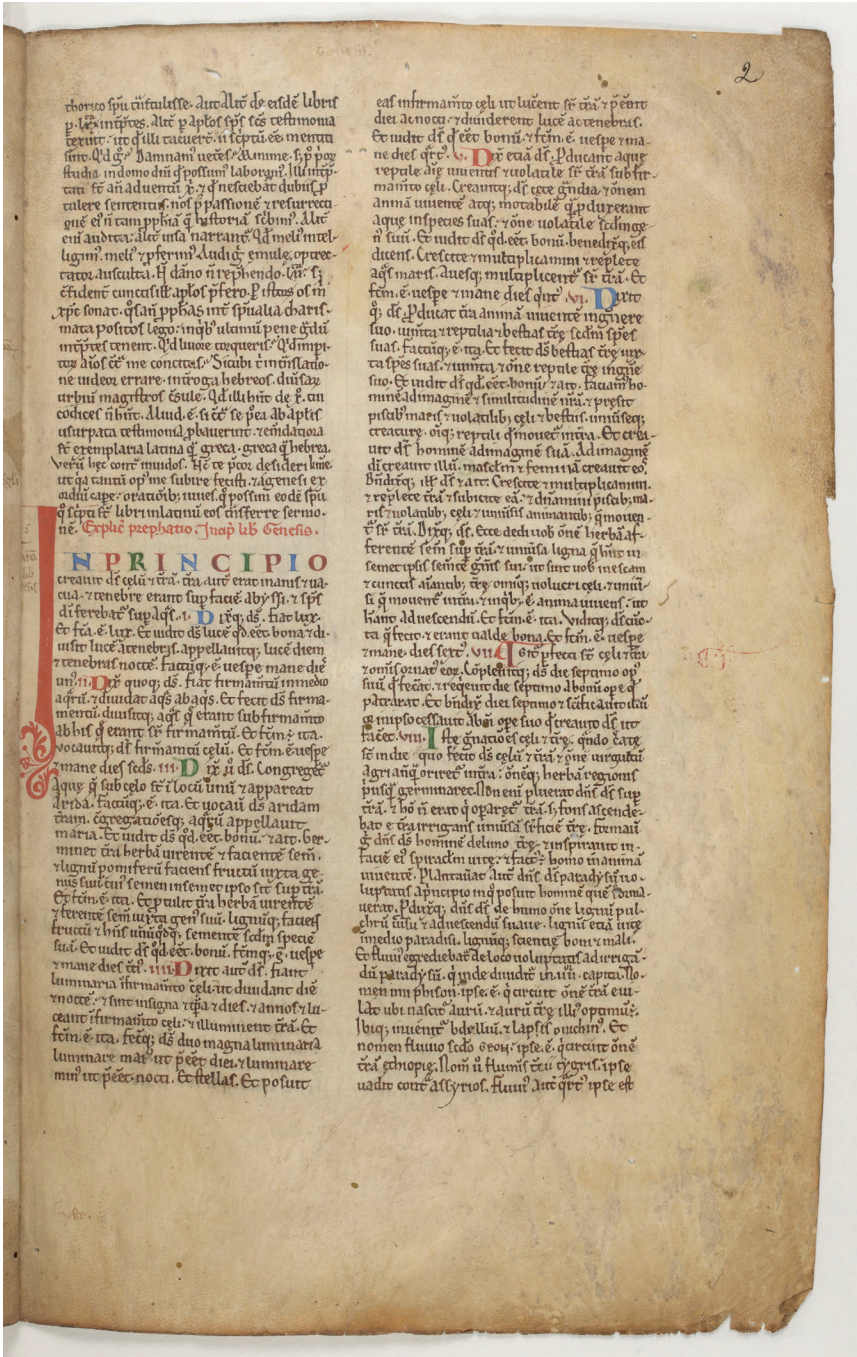 2
thorico spu t̄nstulisse. Aut Alit̄ de eisdē libris
p. lxx int̄p̄tes. Alit̄ p aplos sp̄s sc̄s testimonia
texuit. ut q̄ illi tacuer̄t. ii sc̄ptū ee. mentiti
sint. Qd g̊. Damnam' vet̄es. Minime. s; p' p̄or̄
studia in domo dn̄i q̊ possum' laboram'. Illi int̄p̄
tati st̄ an̄ adventū x̄. ⁊ q̊ nesciebāt dubiis p̄
tulere sententiis. nos p' passionē ⁊ resurrecti
onē ei' n̄ tam pph̄iā q̄ historiā sc̄bim'. Alit̄
eni audita. alit̄ visa narrant̄. Qd meli' intel-
ligim'. meli' ⁊ pferim'. Audi g̊ emule. optrec-
tator ausculta. N̄ dāno n̄ rep̄hendo .lxx. s;
c̄fident̄ cunctis ill' aplos p̄fero. P istoȥ os m̄
xp̄c sonat. q̊s an̄ pph̄as int̄ sp̄ualia charis-
mata positos lego. inq̄b' ultimū pene g̊dū
int̄p̄tes tenent. Qd livore torqueris. Qd imp̄i-
toȥ aīos c̄t̊ me concitas. Sicubi t̄ int̄nslatio-
ne videor errare. int̄roga hebreos. diūsaȥ
urbiū magistros c̄sule. Qd illi hn̄t de x̄. tui
codices n̄ hn̄t. Aliud .ē. si c̄t̊ se p̄ea ab aplis
usurpata testimonia p̄baverint. ⁊ em̄datiora
st̄ exemplaria latina q̄ greca. greca q̄ hebrea.
Verū hec cont̊ invidos. N̄c te p̄cor desideri kīme.
ut q̊a tantū op' me subire fecisti. ⁊ a genesi ex
ordiū cape. orationib; iuves. q̊ possim eodē sp̄u
q̊ sc̄pti st̄ libri in latinū eos t̄nsferre sermo-
nē. Explic̄ prephatio. Incip̄ lib̄ Genesis.
IN PRINCIPIO
creavit d̄s celū ⁊ t̄rā. t̄rā aut̄ erat inanis ⁊ va-
cua. ⁊ tenebre erant sup faciē abyssi. ⁊ sp̄s
dī ferebat̄ sup aq̄s. .i. Dixq̄; d̄s. fiat lux.
Et fc̄a .ē. lux. Et vidit d̄s lucē qd ēēt bona ⁊ di-
visit lucē a tenebris. appellavitq̄; lucē diem
⁊ tenebras noctē. factūq̄; .ē. vespe mane diē
un'. ii. Dix̄ quoq̄; d̄s. fiat firmam̄tū in medio
aq̄rū. ⁊ dividat aq̄s ab aq̄s. Et fecit d̄s firma-
mentū. divisitq̄; aq̄s q̄ erant sub firmam̄to
ab his q̄ erant sr̄ firmam̄tū. Et fc̄m ē ita.
vocavitq̄; d̄s firmam̄tū celū. Et fc̄m .ē. vespe
⁊ mane dies scd̄s. iii. Dix̄ ū d̄s. Congregēt̄
aque q̄ sub celo st̄ ī locū unū ⁊ appareat
arida. factūq̄; .ē. ita. Et vocavit d̄s aridam
t̄ram. c̄gregationesq̄; aq̄ȥū appellavit
maria. Et vidit d̄s qd ēēt bonū. ⁊ ait. Ger-
minet t̄ra herbā virentē ⁊ facientē sem̄.
⁊ lignū pomiferū faciens fructū iuxta ge-
nus suū. cui' semen in semet ipso sit sup t̄rā.
Et fc̄m .ē. ita. Et p̄tulit t̄ra herbā virentē
⁊ ferentē sem̄ iuxta gen' suū. lignūq̄; faciens
fructū ⁊ hn̄s unūq̊dq̄; sementē scd̄m speciē
suā. Et vidit d̄s qd ēēt bonū. fc̄mq̄; .ē. vespe
⁊ mane dies t̄ti'. iiii. Dixit aut̄ d̄s. fiant
luminaria ī firmam̄to celi. ut dividant diē
⁊ noctē. ⁊ sint in signa ⁊ t̄pa ⁊ dies. ⁊ annos ⁊ lu-
ceant ī firmam̄to celi. ⁊ illuminent t̄rā. Et
fc̄m .ē. ita. fecq̄; d̄s duo magna luminaria
luminare mai' ut p̄ēēt diei. ⁊ luminare
min' ut p̄ēēt nocti. Et stellas. Et posuit
eas in firmam̄to celi ut lucent sr̄ t̄rā ⁊ p̄ēēnt
diei ac nocti. ⁊ dividerent lucē ac tenebras.
Et vidit d̄s q̊ ēēt bonū. ⁊ fc̄m .ē. vespe ⁊ ma-
ne dies q̊rt'. v. Dix̄ etiā d̄s. Producant aque
reptile aīe viventis ⁊ volatile sr̄ t̄rā sub fir-
mam̄to celi. Creavitq̄; d̄s cete g̊ndia ⁊ om̄em
animā viventē atq̄; motabilē q̄ pduxerant
aque in species suas. ⁊ om̄e volatile scd̄m ge-
n' suū. Et vidit d̄s qd ēēt bonū. benedixq̄; eis
dicens. Crescite ⁊ multiplicamini ⁊ replete
aq̄s maris. Avesq̄; multiplicent̄ sr̄ t̄rā. Et
fc̄m .ē. vespe ⁊ mane dies q̊nt'. vi. Dixit
q̄; d̄s. Producat t̄ra animā viventē in genere
suo. iumta ⁊ reptilia ⁊ bestias t̄re scd̄m sp̄es
suas. factūq̄; .ē. ita. Et fecit d̄s bestias t̄re iux
ta sp̄es suas. ⁊ iumta ⁊ om̄e reptile t̄re in gen̄e
suo. Et vidit d̄s qd .ēēt. bonū. ⁊ ait. faciam' ho-
minē ad imaginē ⁊ similitudinē nr̄ā. ⁊ presit
piscib' maris ⁊ volatilib; celi ⁊ bestiis. univseq̄;
creature. om̄iq̄; reptili q̊ movet̄ in t̄ra. Et crea-
vit d̄s hominē ad imaginē suā. Ad imaginē
dī creavit illū. mascl̄m ⁊ feminā creavit eos.
Bn̄dixtq̄; ill' d̄s ⁊ ait. Crescite ⁊ multiplicamini.
⁊ replete t̄rā ⁊ subicite eā. ⁊ dn̄amini piscib; ma-
ris ⁊ volatilib; celi ⁊ univsis animantib; q̄ moven-
t̄ sr̄ t̄rā. Dixitq̄; d̄s. Ecce dedi vob̄ om̄ē herbā af-
ferentē sem̄ sup t̄rā. ⁊ univsa ligna q̄ hn̄t in
semet ipsis sem̄tē gen̄is sui. ut sint vob̄ in escam
⁊ cunctis aīantib; t̄re. omiq̄; volucri celi. ⁊ univ-
sis q̄ movent̄ in t̄ra. ⁊ inq̄b; .ē. anima vivens. ut
hant ad vescendū. Et fc̄m .ē. ita. Viditq̄; d̄s cūc-
ta q̄ fecit. ⁊ erant valde bona. Et fc̄m .ē. vespe
⁊ mane. dies sext'. vii. Igit̄ p̄fecti st̄ celi ⁊ t̄ra
⁊ om̄is ornat' eoȥ. Cōplevitq̄; d̄s die septimo op'
suū q̊ fec̄at. ⁊ req̄evit die septimo ab om̄i ope q̊
patrarat. Et bn̄dix̄ diei septimo ⁊ sc̄ificavit illū
q̊a in ipso cessav̄at ab om̄i ope suo q̊ creavit d̄s ut
facēt. viii. Iste gn̄atiōes celi ⁊ t̄re. q̊ndo c̄ate
st̄ in die quo fecit d̄s celū ⁊ t̄rā ⁊ om̄e virgultū
agri anq̄ orirēt̄ in t̄ra. om̄ēq̄; herbā regionis
pusq̄ germinaret. Non eni pluerat dn̄s d̄s sup
t̄rā. ⁊ hō n̄ erat q̊ oparet̄ t̄rā. s; fons ascende-
bat e t̄ra irrigans univsā sr̄ficiē t̄re. formavit
g̊ dn̄s d̄s hominē de limo t̄re. ⁊ inspiravit in
faciē ei' spiraclm̄ vite. ⁊ fact' ē homo in animā
viventē. Plantav̄at aut̄ dn̄s d̄s paradysū vo-
luptatis a principio in q̊ posuit hominē que forma-
verat. Produxq̄; dn̄s d̄s de humo om̄e lignū pul-
chrū visu ⁊ ad vescendū suave. lignū etiā vite
in medio paradisi. lignūq̄; scientie boni ⁊ mali.
Et fluvi' egrediebat̄ de loco voluptatis ad irrigā-
dū paradysū. q̊ inde dividit̄ in .iiii. capita. No-
men uni phison. ipse .ē. q̊ circuit om̄ē t̄rā evi-
lat. ubi nascit̄ aurū. ⁊ aurū t̄re illi' optimū ē.
Ibiq̄; invenit̄ bdelliū. ⁊ lapis onichin'. Et
nomen fluvio scd̄o Geon. ipse .ē. q̊ circuit om̄ē
t̄rā ethiopie. Nom̄ ū flumīs t̄cii tygris. ipse
vadit cont̊ assyrios. fluvi' aut̄ q̊rt' ipse est